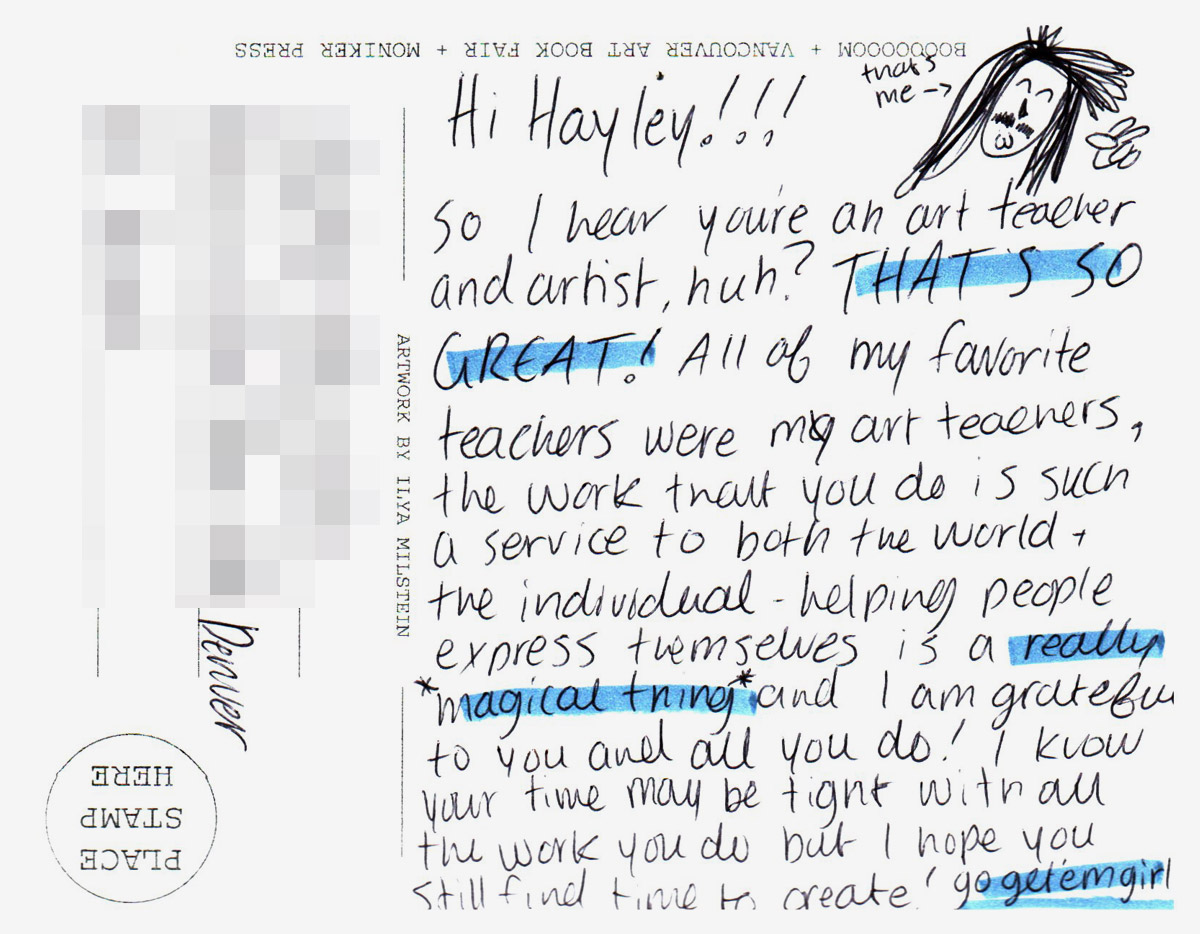 BOOOOOOOM + VANCOUVER ART BOOK FAIR + MONIKER PRESS
that's
me →
Hi Hayley!!!
So I hear you're an art teacher
and artist, huh? THAT'S SO
GREAT! All of my favorite
teachers were my art teachers,
the work that you do is such
a service to both the world +
the individual - helping people
express themselves is a really
*magical thing* and I am grateful
to you and all you do! I know
your time may be tight with all
the work you do but I hope you
still find time to create! go get'em girl
ARTWORK BY ILYA MILSTEIN
Denver
PLACE
STAMP
HERE